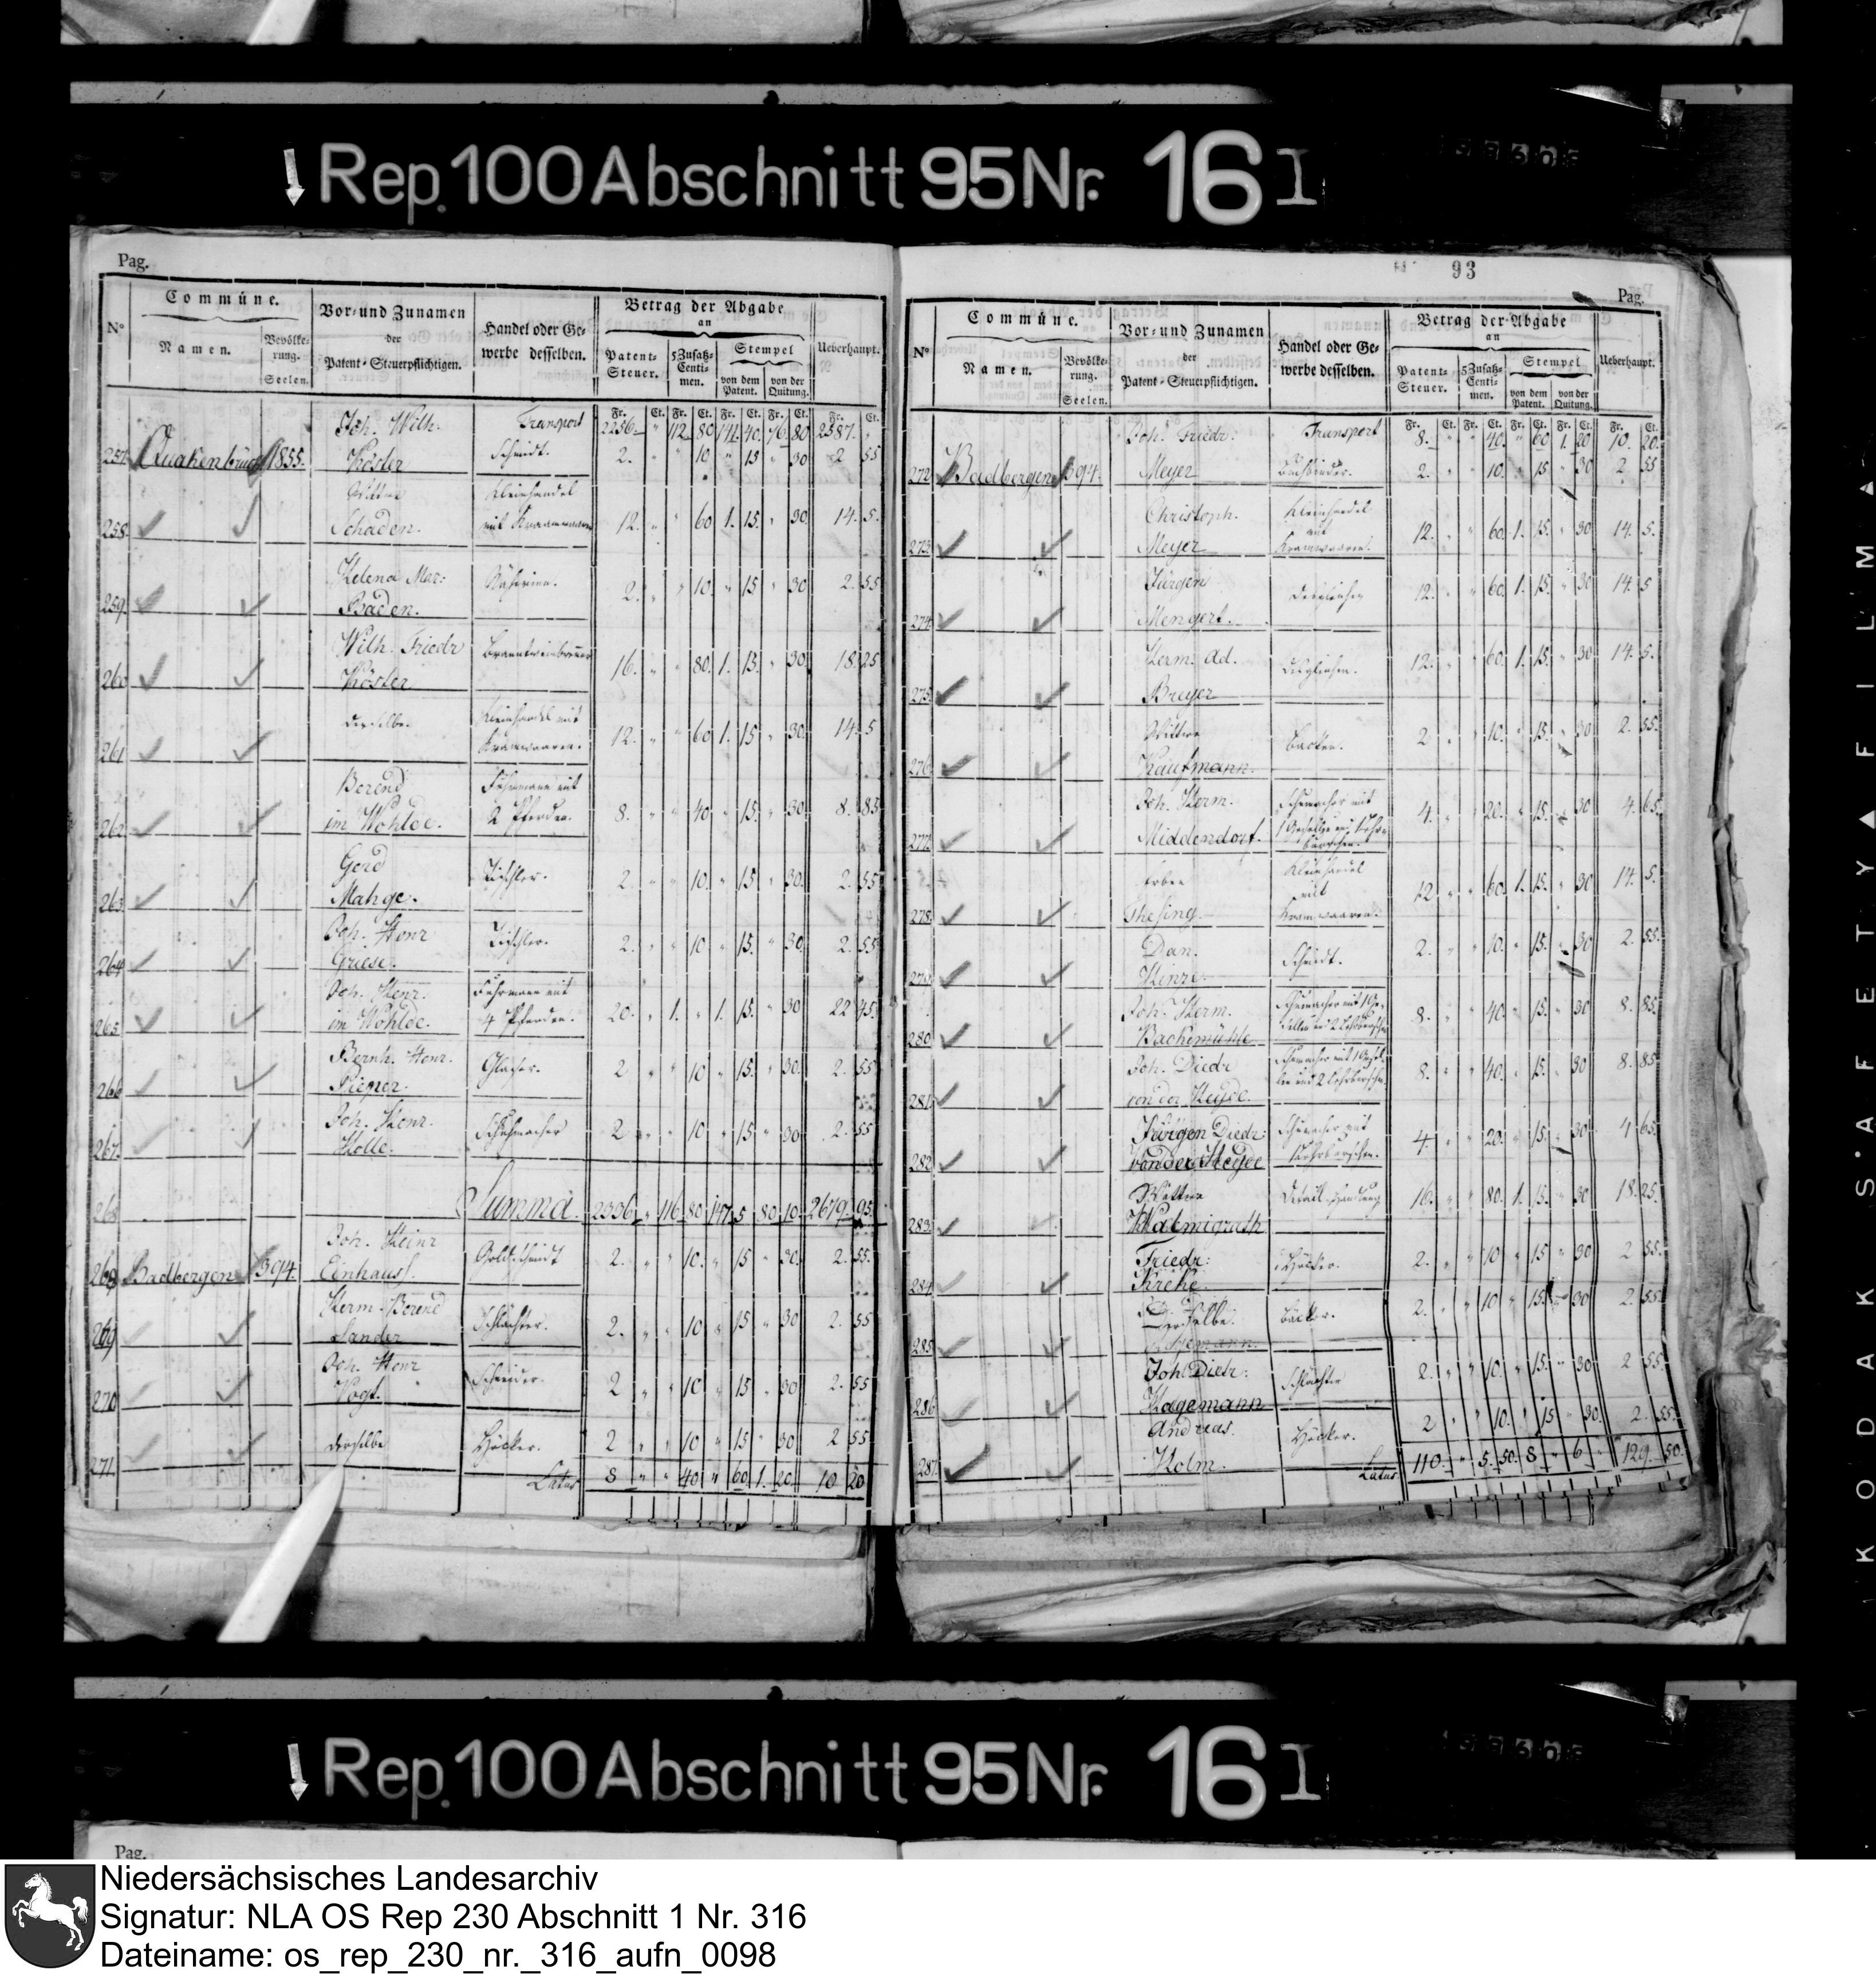 Rep. 100 Abschnitt 95 Nr. 16 I
Pag.
Commüne.
Vor- und Zunamen
der
Patent-Steuerpflichtigen.
Handel oder Ge-
werbe desselben.
Betrag der Abgabe
an
Nº
Namen.
Bevölke-
rung.
Seelen.
Patent-
Steuer.
5 Zusatz-
Centi-
men.
Stempel
von dem
Patent.
von der
Quitung.
Ueberhaupt.
Fr. Ct. Fr. Ct. Fr. Ct. Fr. Ct. Fr. Ct.
Transport 2256. " 112 80 141. 40. 76. 80 2587. "
257. Quakenbrück 1855. Joh. Wilh. Köster Schmidt. 2. " " 10 " 15 " 30 2 55
258. Wittwe Schaden. Kleinhandel mit Kramwaaren 12. " " 60 1. 15. " 30. 14. 5.
259. Helena Mar: Baden. Näherinn. 2. " " 10. " 15 " 30 2. 55
260 Wilh. Friedr Köster Branntweinbrenner 16. " " 80. 1. 15. " 30 18. 25
261 derselbe. Kleinhandel mit Kramwaaren. 12. " " 60 1. 15 " 30. 14. 5
262 Berend im Wohlde. Fuhrmann mit 2 Pferden. 8. " " 40 " 15. " 30 8. 85
263 Gerd Mahge. Tischler. 2. " " 10. " 15 " 30. 2. 55
264 Joh. Henr Griese. Tischler. 2. " " 10 " 15. " 30. 2. 55
265 Joh. Henr. im Wohlde. Fuhrmann mit 4 Pferden. 20. " 1. " 1. 15. " 30 22 45.
266 Bernh. Henr. Glaser. 2 " " 10 " 15. " 30. 2. 55
267. Joh. Henr. Holle. Schuhmacher 2 " " 10 " 15 " 30 2. 55
268 Summa. 2336 " 116 80 147. 5 80. 10. 2679. 95.
268 Badbergen 394. Joh. Heinr Einhaus. Goldschmidt 2. " " 10. " 15 " 30. 2. 55.
269 Herm. Berend Sander Schlächter. 2. " " 10 " 15 " 30 2. 55
270 Joh. Henr Vogt. Schneider. 2 " " 10 " 15 " 30 2. 55
271 derselbe Höcker. 2 " " 10 " 15 " 30 2 55
Latus 8 " " 40 " 60 1. 20. 10 20
93
Pag.
Commüne.
Vor- und Zunamen
der
Patent-Steuerpflichtigen.
Handel oder Ge-
werbe desselben.
Betrag der Abgabe
an
Nº
Namen.
Bevölke-
rung.
Seelen.
Patent-
Steuer.
5 Zusatz-
Centi-
men.
Stempel
von dem
Patent.
von der
Quitung.
Ueberhaupt.
Fr. Ct. Fr. Ct. Fr. Ct. Fr. Ct. Fr. Ct.
Transport 8. " " 40. " 60 1. 20 10. 20.
272 Badbergen 394. Joh. Friedr: Meyer Buchbinder. 2. " " 10. " 15 " 30 2. 55
273. Christoph. Meyer Kleinhandel mit Kramwaaren. 12. " " 60. 1. 15. " 30 14. 5.
274. Jürgen Mengert. desgleichen 12. " " 60. 1. 15. " 30 14. 5
275. Herm. Ad. Breyer desgleichen. 12. " " 60. 1. 15. " 30 14. 5.
276 Wittwe Kaufmann. Backer. 2 " " 10. " 15. " 30 2. 55.
277. Joh. Herm. Middendorf. 4. " " 20. " 15. " 30 4. 65.
278. Erben Thesing. Kleinhandel mit Kramwaaren. 12 " " 60. 1. 15. " 30 14. 5.
279. Dan. Hinze. Schmidt. 2. " " 10. " 15. " 30 2. 55.
280. Joh. Herm. 8. " " 40. " 15. " 30 8. 85.
281. Joh. Diedr von der Heyde. 8. " " 40. " 15. " 30 8. 85
282 Jürgen Diedr: von der Heyde 4. " " 20. " 15. " 30 4 65.
283. Wittwe Detail-Handlung 16. " " 80. 1. 15. " 30 18. 25.
284. Friedr: Krehe Höcker. 2. " " 10 " 15 " 30 2 55.
285. Derselbe. Bäcker. 2. " " 10 " 15. " 30 2. 55.
286. Joh Diedr: Hagemann Schlächter 2. " " 10. " 15 " 30 2 55.
287. Andreas. Holm. Höcker. 2 " " 10. " 15 " 30. 2. 55.
Latus 110. " 5. 50. 8 " 6 " 129. 50.
KODAK SAFETY FILM
Rep. 100 Abschnitt 95 Nr. 16 I
Pag.
Niedersächsisches Landesarchiv
Signatur: NLA OS Rep 230 Abschnitt 1 Nr. 316
Dateiname: os_rep_230_nr._316_aufn_0098